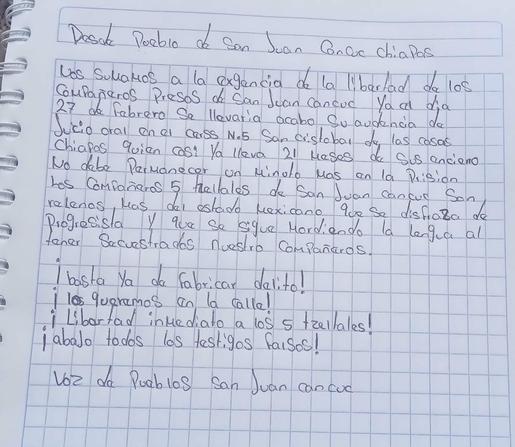 Desde Pueblo de San Juan Cancuc Chiapas
Nos sumamos a la exgencia de la libertad de los
Compañeros Presos de San Juan cancuc ya el dia
27 de Febrero Se llevaria acabo Su audencia de
Juicio oral en el Cerss N.5 San cristobal de las casas
Chiapas quien casi Ya lleva 21 Meses de Sus enciero
No debe Permanecer un Minoto Mas en la Prision
los Compañeros 5 tzeltales de San Juan cancuc Son
rehenos Mas del estado Mexicano que se disfraza de
Progresista y que se sigue Mordiendo la lengua al
tener Secuestrados nuestro Compañeros.
¡ basta Ya de Fabricar delito!
¡ los queremos en la calle!
¡ Libertad inmediato a los 5 tzeltales!
¡abajo todos los testigos Falsos!
Voz de Pueblos San Juan cancuc